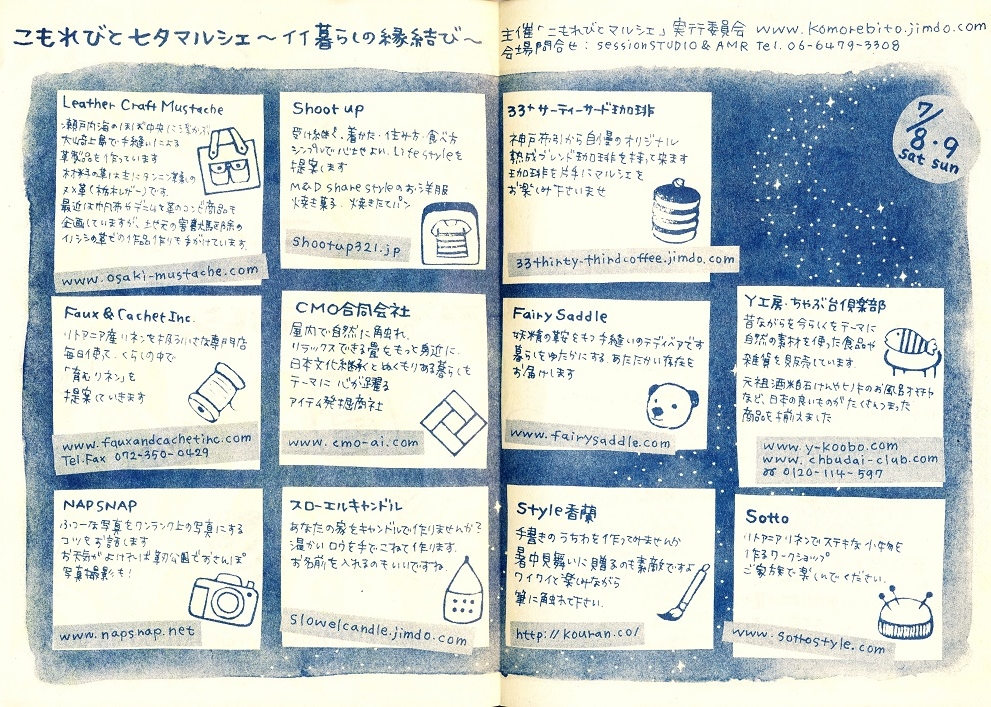 こもれびと七夕マルシェ～イイ暮らしの縁結び～
主催「こもれびとマルシェ」実行委員会 www.komorebito.jimdo.com
会場問合せ：sessionSTUDIO & AMR Tel. 06-6479-3308
7/8・9
sat sun
Leather Craft Mustache
瀬戸内海のほぼ中央に浮かぶ
大崎上島で手縫いによる
革製品を作っています
材料の革は主にタンニン革の
ヌメ革(栃木レザー)です。
最近は帆布やデニムと革のコンビ商品も
イノシシの革での作品作りも手がけています。
www.osaki-mustache.com
Shoot up
受け継ぐ、着かた・住み方・食べ方
シンプルで心地よい、Life styleを
提案します
M&D share styleのお洋服
焼き菓子、焼きたてパン
shootup321.jp
33+ サーティーサード珈琲
神戸布引から自慢のオリジナル
熟成ブレンド珈琲を持って来ます
珈琲を片手にマルシェを
お楽しみ下さいませ
33thirty-thirdcoffee.jimdo.com
Faux & Cachet Inc.
リトアニア産リネンを扱う小さな専門店
毎日使て、くらしの中で
「育むリネン」を
提案していきます
www.fauxandcachetinc.com
Tel.Fax 072-350-0429
CMO合同会社
屋内で自然に触れ、
リラックスできる畳をもっと身近に、
日本文化継承とぬくもりある暮らしを
テーマに 心が躍る
アイテム発掘商社
www.cmo-ai.com
Fairy Saddle
妖精の鞍をもつ手縫いのテディベアです
暮らしをゆたかにする あたたかい存在を
お届けします
www.fairysaddle.com
Y工房・ちゃぶ台倶楽部
昔ながらを今らしくをテーマに
自然の素材を使った食品や
雑貨を販売しています。
元祖酒粕石けんやヒノキのお風呂オモチャ
など、日本の良いものがたくさんつまった
商品を揃えました
www.y-koobo.com
www.chbudai-club.com
☎ 0120-114-597
NAPSNAP
ふつーな写真をワンランク上の写真にする
コツをお話します
お天気がよければ靭公園でおさんぽ
写真撮影も!
www.napsnap.net
スローエルキャンドル
あなたの家をキャンドルで作りませんか?
温かいロウを手でこねて作ります。
お名前を入れるのもいいですね。
slowelcandle.jimdo.com
Style香蘭
手書きのうちわを作ってみませんか
暑中見舞いに贈るのも素敵ですよ
ワイワイと楽しみながら
筆に触れて下さい。
http://kouran.co/
Sotto
リトアニアリネンでステキな小物を
作るワークショップ
ご家族で楽しんでください。
www.sottostyle.com